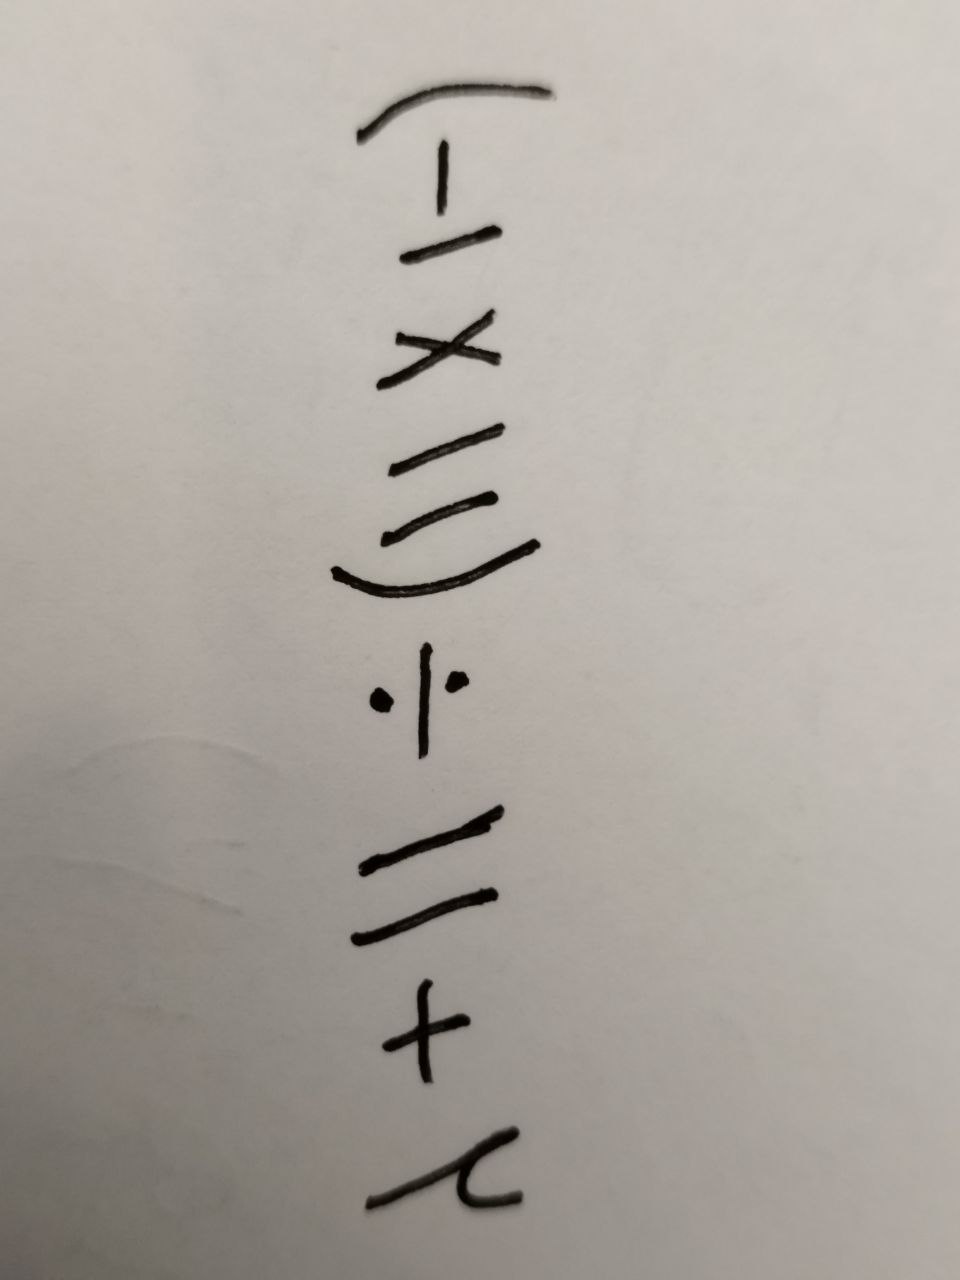 (-۱×۱۱)÷۱۱+۲